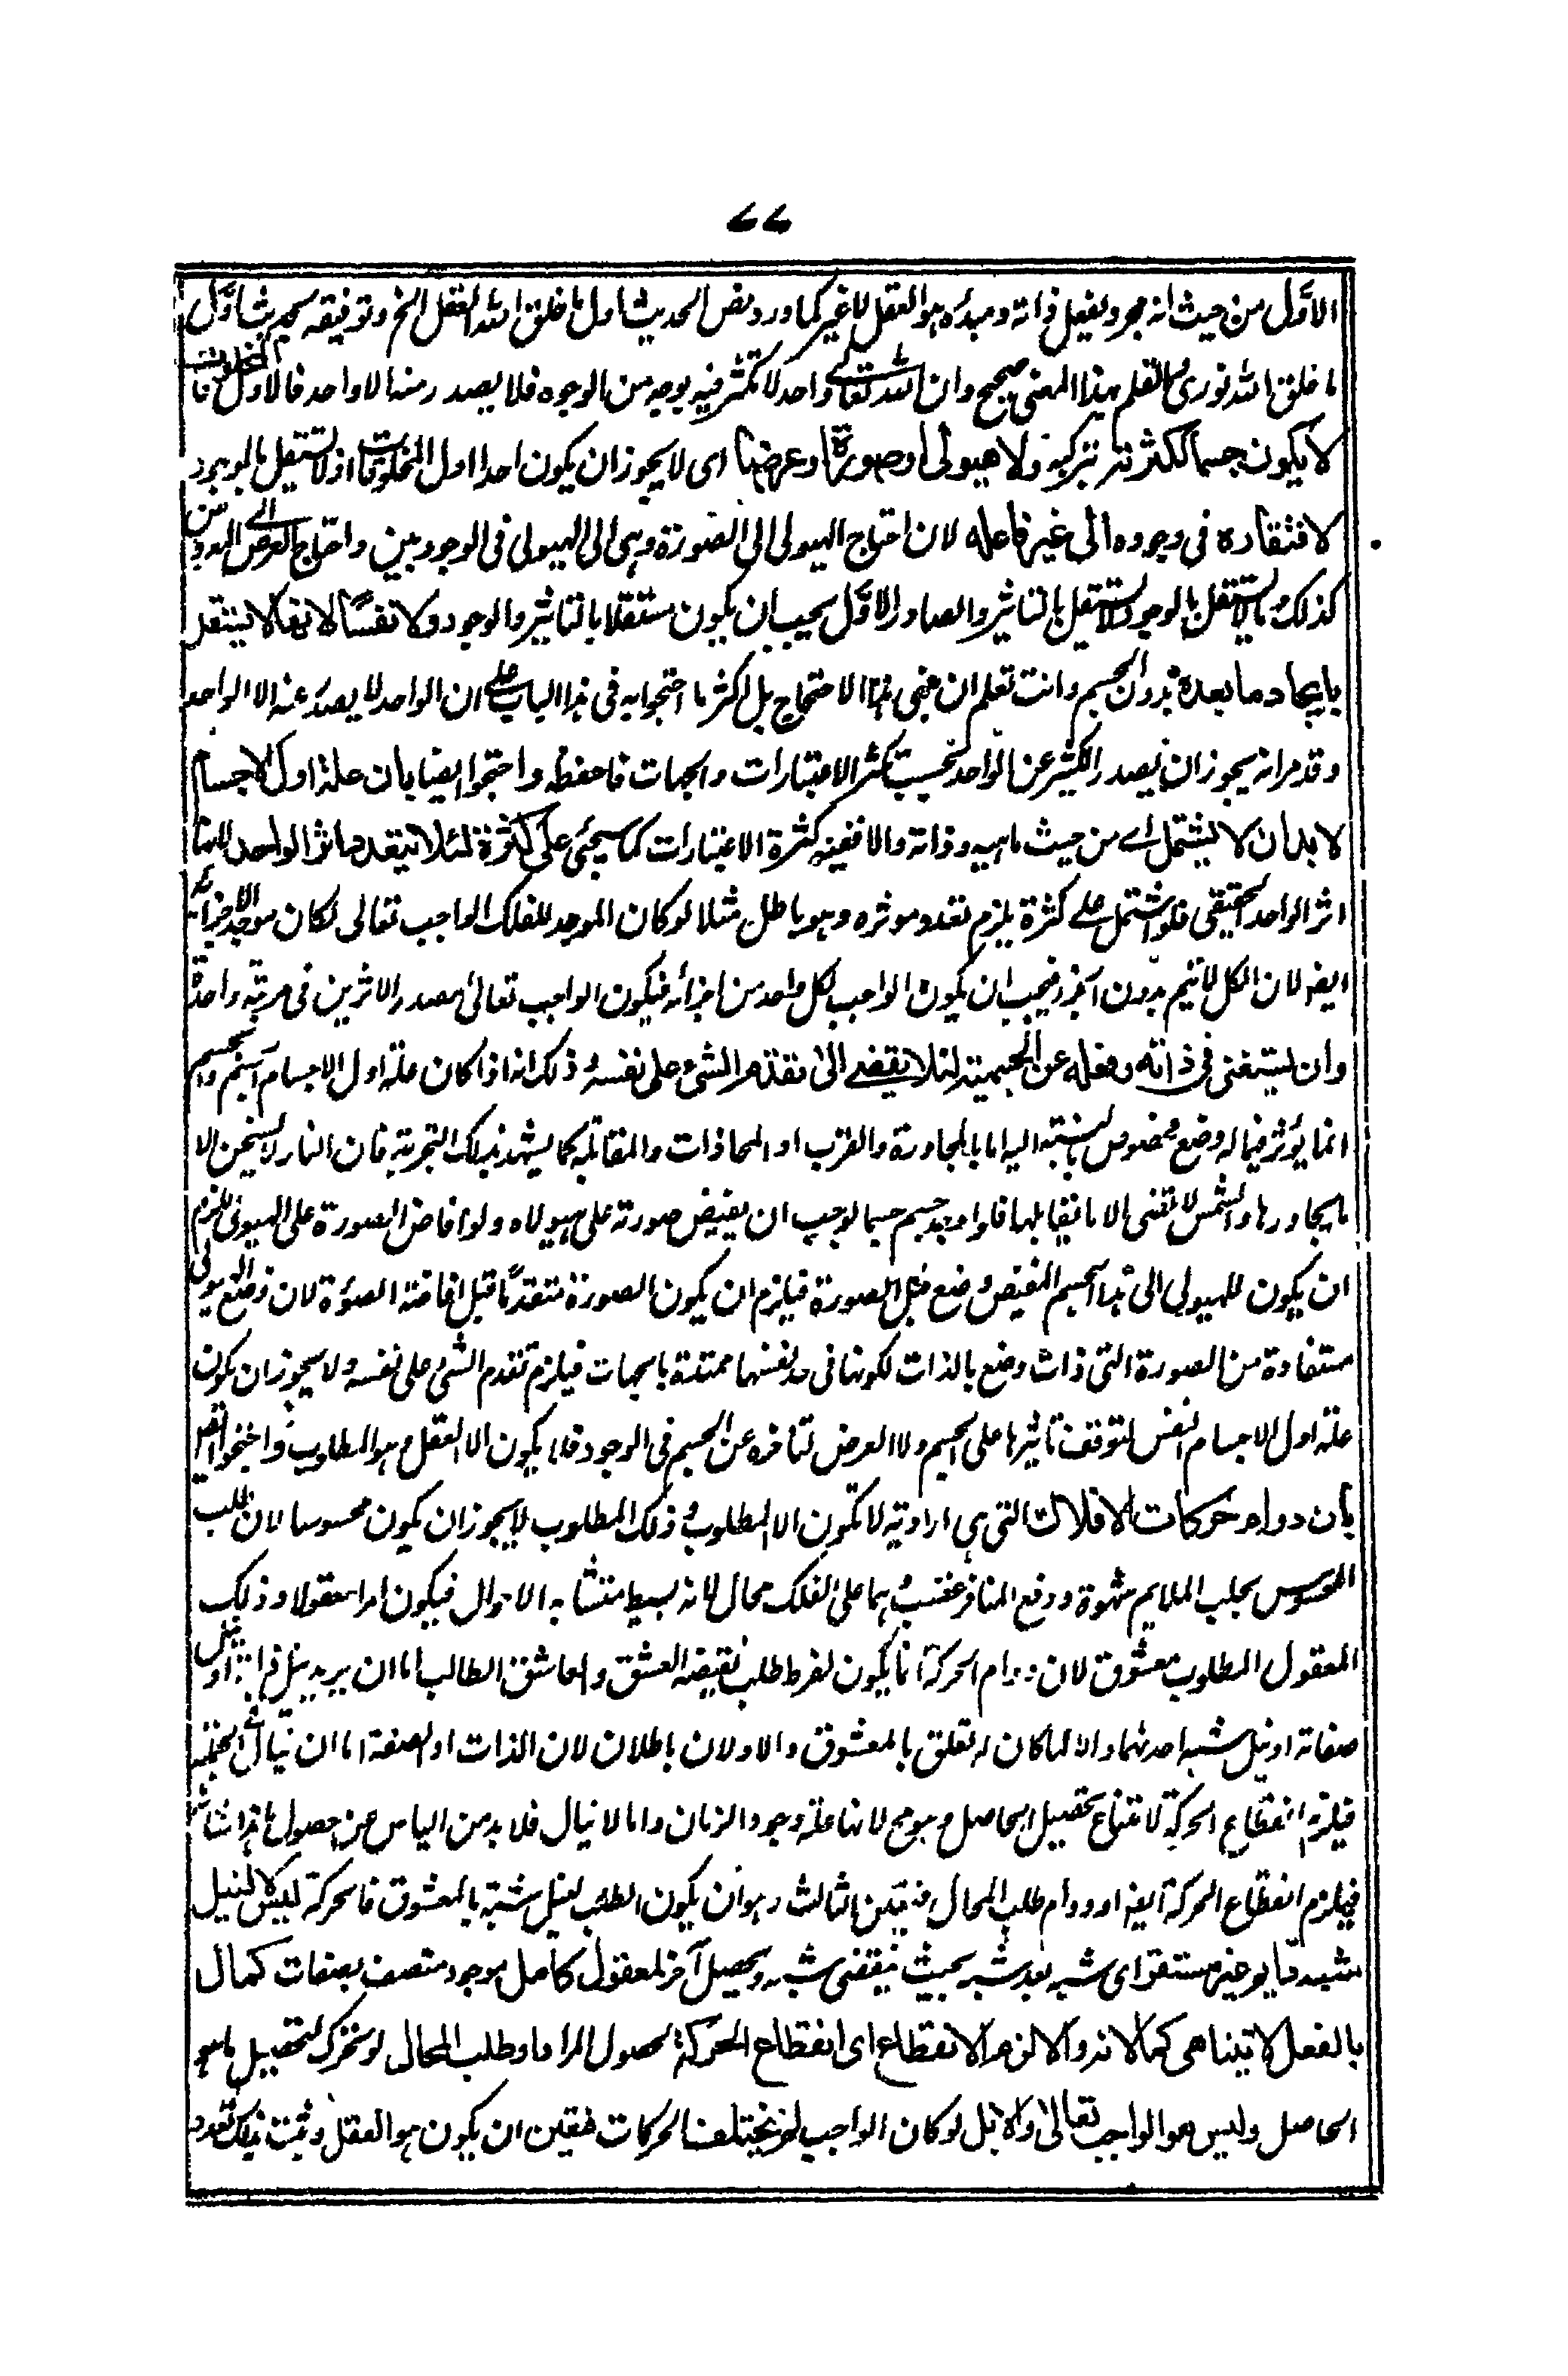 ٧٧
الاول من حيث انه مجرد يعقل ذاته ومبدئه هو العقل لا غير كما ورد نص الحديث اول ما خلق الله العقل الخ وتوفيقه بحديث اول
ما خلق الله نوري والقلم بهذا المعنى صحيح وان الله تعالى واحد لا تكثر فيه بوجه من الوجوه فلا يصدر منه الا واحد فالاول المخلوقات
لا يكون جسما لكثرته بتركبه ولا هيولى او صورة او عرضا اى لا يجوز ان يكون احدا اول المخلوقات اذ لا تستقل بالوجود
لافتقاره فى وجوده الى غير فاعله لان احتياج الهيولى الى الصورة وهى الى الهيولى فى الوجود بين واحتياج العرض الى
كذلك وما لا يستقل بالوجود لا يستقل بالتاثير والصادر الاول يجب ان يكون مستقلا بالتاثير والوجود ولا نفسا لانها لا تستقل
بايجاد ما بعده بدون الجسم وانت تعلم ان مبنى هذا الاحتجاج بل اكثر ما احتجوا به فى هذا الباب على ان الواحد لا يصدر عنه الا الواحد
وقد مر انه يجوز ان يصدر الكثير عن الواحد بحسب تكثر الاعتبارات والجهات فاحفظه واحتجوا ايضا بان علة اول الاجسام
لا بد ان لا يشتمل اے من حيث ماهيه وذاته والا ففيه كثرة الاعتبارات كما سيجئ على كثرة لئلا يتعدد اثر الواحد
اثر الواحد الحقيقى فلو اشتمل على كثرة يلزم تعدد موثره وهو باطل مثلا لو كان الموجد للفلك الواجب تعالى لكان موجد الاجزائه
ايضا لان الكل لا يتم بدون اجزاء فيجب ان يكون الواجب لكل واحد من اجزائه فيكون الواجب تعالى مصدر الاثرين فى مرتبة واحدة
وان يستغنى فى ذاته وفعله عن الجسمية لئلا يفضے الى تقدم الشئ على نفسه وذلك انه اذا كان علة اول الاجسام الجسم والجسم
انما يؤثر فيما له وضع مخصوص بالنسبة اليه اما بالمجاورة والقرب او المحاذات والمقابلة كما يشهد بذلك التجربة فان النار لا يسخن الا
ما يجاورها والشمس لا تضئ الا ما يقابلها فلو اوجد جسم جسما لوجب ان يفيض صورته على هيولاه ولو افاض الصورة على الهيولى يلزم
ان يكون للهيولى الى هذا الجسم المفيض وضع قبل الصورة فيلزم ان يكون الصورة متقدما قبل افاضة الصورة لان وضع الهيولى
مستفادة من الصورة التى ذات وضع بالذات لكونها فى حد نفسها ممتدة بالجهات فيلزم تقدم الشئ على نفسه ولا يجوز ان يكون
علة اول الاجسام النفس لتوقف تاثيرها على الجسم ولا العرض لتاخره عن الجسم فى الوجود فلا يكون الا العقل وهو المطلوب واحتجوا ايضا
بان دوام حركات الافلاك التى هى ارادية لا تكون الا لمطلوب وذلك المطلوب لا يجوز ان يكون محسوسا لان طلب
المحسوس بجلب الملايم شهوة ودفع المنافر غضب وهما على الفلك محال لانه بسيط متشابه الاحوال فيكون امرا معقولا وذلك
المعقول المطلوب معشوق لان دوام الحركة انما يكون لفرط طلب يقتضيه العشق والعاشق الطالب اما ان يريد نيل ذاته او نيل
صفاته او نيل شبه احدهما والا لما كان له تعلق بالمعشوق والاولان باطلان لان الذات او الصفة اما ان ينال فى الجملة
فيلزم انقطاع الحركة لامتناع تحصيل الحاصل وهو مح لانها علة وجود الزمان واما لا ينال فلا بد من الياس عن حصول ما هذا شانه
فيلزم انقطاع الحركة ايضا او دوام طلب المحال فتعين الثالث وهو ان يكون الطلب لنيل شبه بالمعشوق فالحركة ليس الا لنيل
شبه غير مستقر اى شبه بعد شبه بحيث ينقضى شبه ويحصل آخر لمعقول كامل موجود متصف بصفات كمال
بالفعل لا يتناهى كمالاته والا لزم الانقطاع اى انقطاع الحركة لحصول المرام او طلب المحال لو تحرك لتحصيل ما هو
الحاصل وليس هو الواجب تعالى والا بل لو كان الواجب لم يختلف الحركات فتعين ان يكون هو العقل وثبت بذلك تعدد